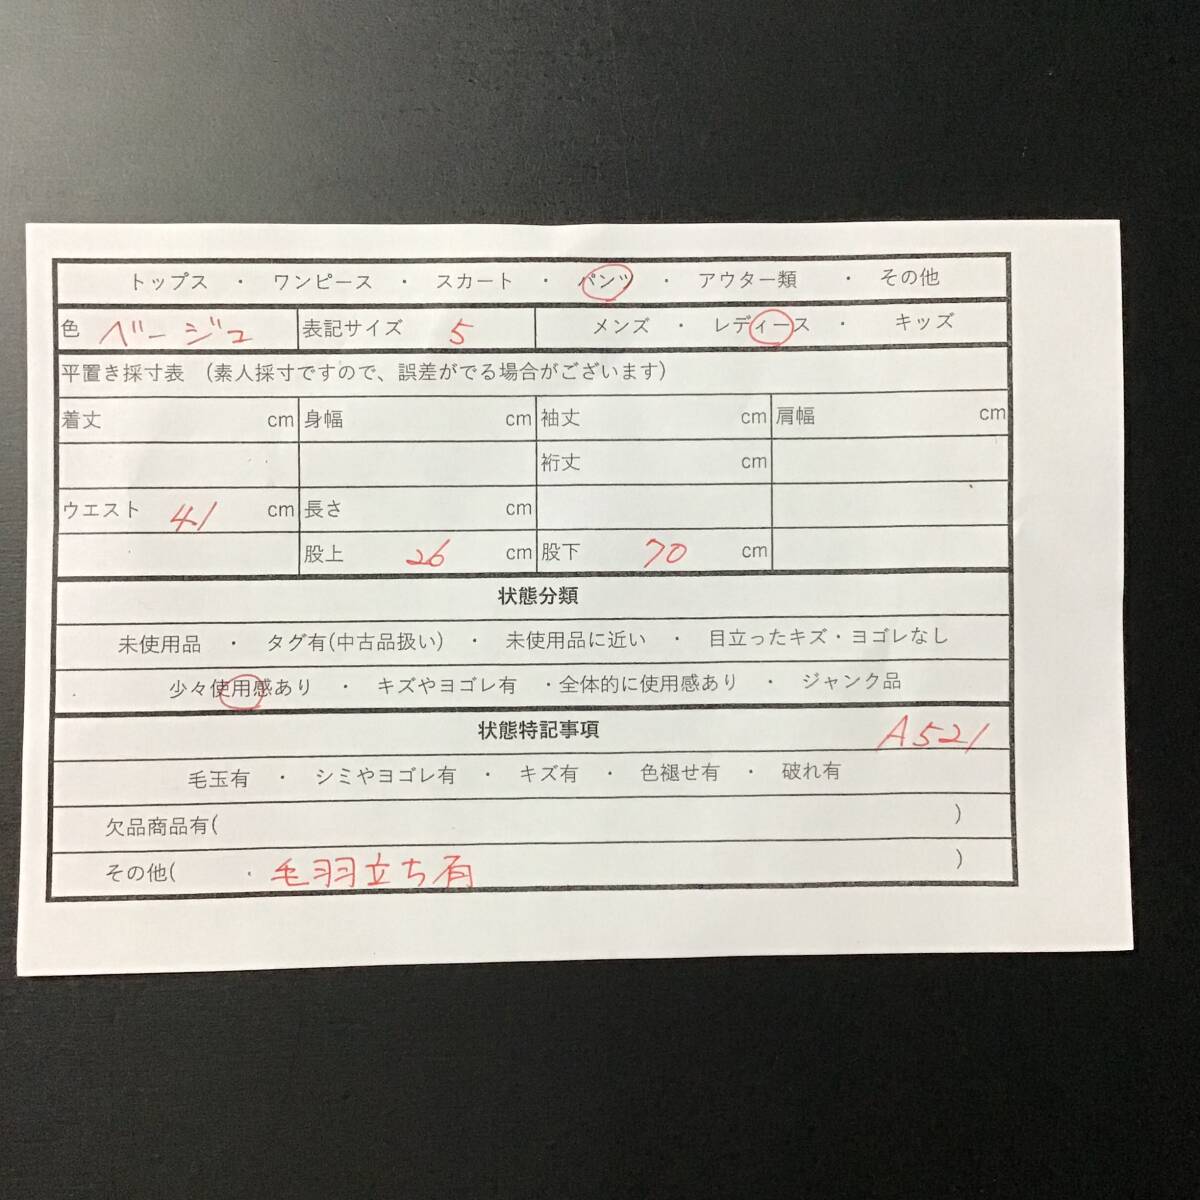 トップス ・ ワンピース ・ スカート ・ パンツ ・ アウター類 ・ その他
色 ベージュ 表記サイズ 5 メンズ ・ レディース ・ キッズ
平置き採寸表 (素人採寸ですので、誤差がでる場合がございます)
着丈 cm 身幅 cm 袖丈 cm 肩幅 cm
裄丈 cm
ウエスト 41 cm 長さ cm
股上 26 cm 股下 70 cm
状態分類
未使用品 ・ タグ有(中古品扱い) ・ 未使用品に近い ・ 目立ったキズ・ヨゴレなし
少々使用感あり ・ キズやヨゴレ有 ・全体的に使用感あり ・ ジャンク品
状態特記事項 A521
毛玉有 ・ シミやヨゴレ有 ・ キズ有 ・ 色褪せ有 ・ 破れ有
欠品商品有( )
その他( ・ 毛羽立ち有 )